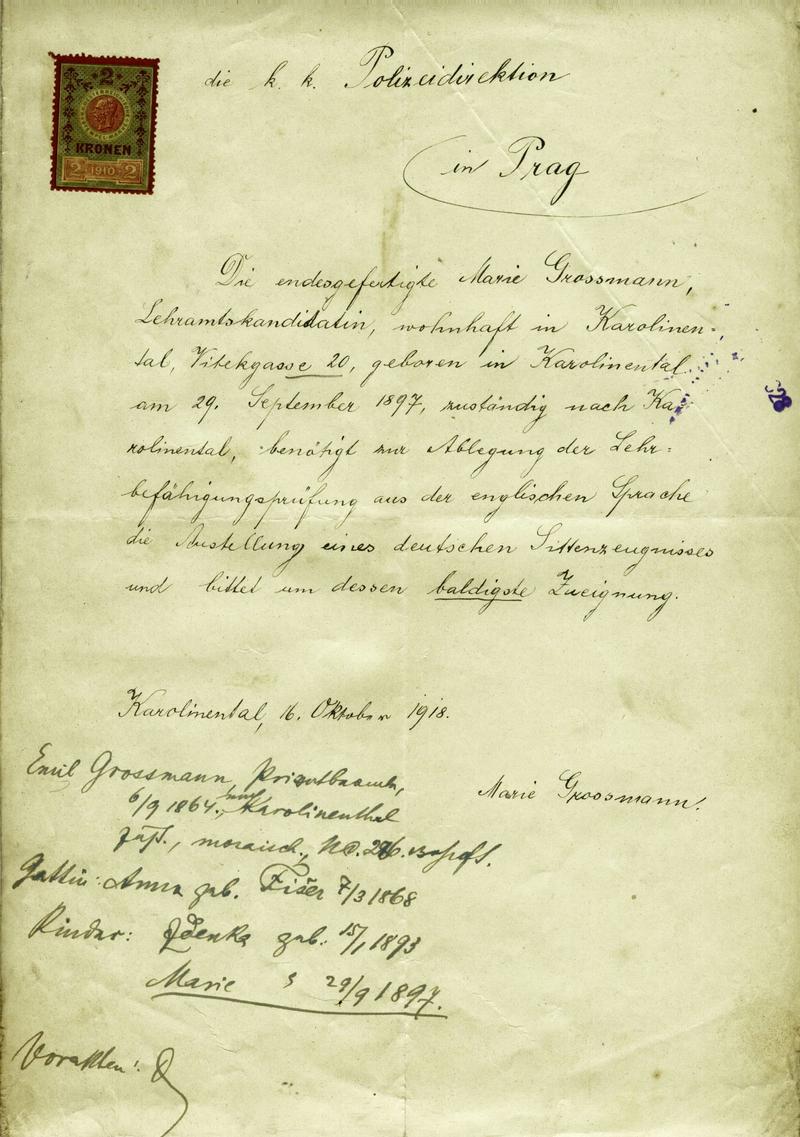 2
KRONEN
2 1910 2
die k. k. Polizeidirektion
in Prag
Die endesgefertigte Marie Grossmann,
Lehramtskandidatin, wohnhaft in Karolinen-
tal, Vitekgasse 20, geboren in Karolinental
am 29. September 1897, zuständig nach Ka-
rolinental, benötigt zur Ablegung der Lehr-
befähigungsprüfung aus der englischen Sprache
die Austellung eines deutschen Sittenzeugnisses
und bittet um dessen baldigste Zueignung.
Karolinental, 16. Oktober 1918.
Marie Grossmann.
Emil Grossmann, Privatbeamt.,
6/9 1864, Karolinenthal
zust., mosaisch, wohnft.
Gattin: Anna geb. Fišer 7/3 1868
Kinder: Zdenka geb. 15/1 1893
Marie " 29/9 1897.
Vorakten: